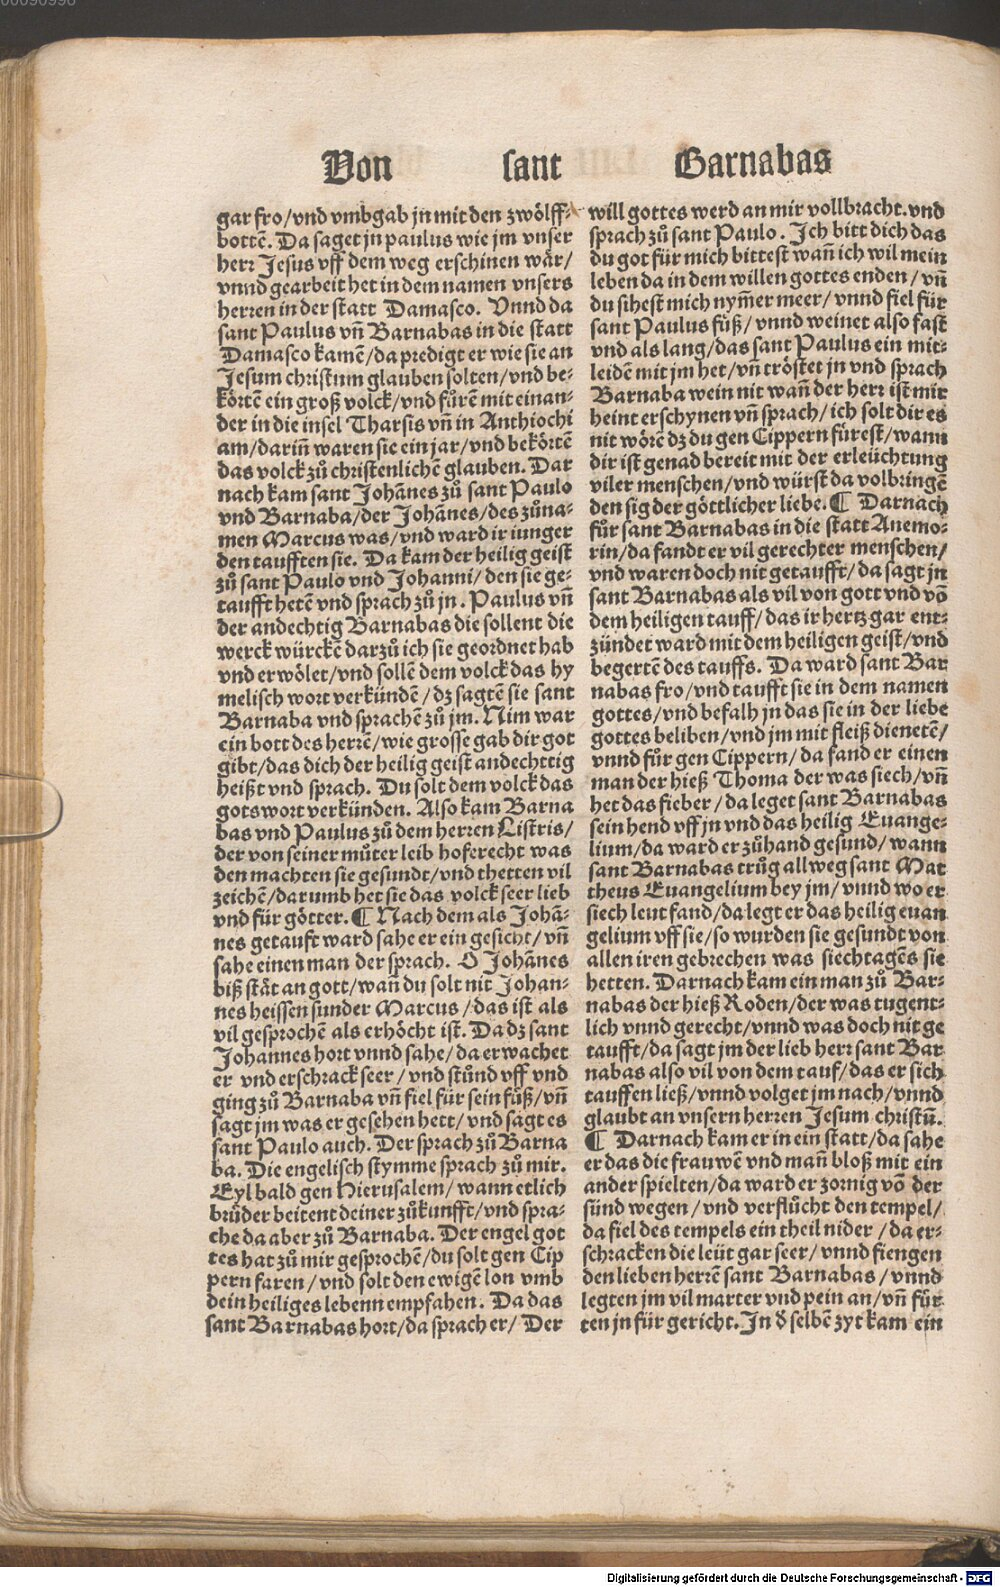 00090990
Von sant Barnabas
gar fro/vnd vmbgab jn mit den zwölff-
bottē. Da saget jn paulus wie jm vnser
herr Jesus vff dem weg erschinen wär/
vnnd gearbeit het in dem namen vnsers
herren in der statt Damasco. Vnnd da
sant Paulus vñ Barnabas in die statt
Damasco kamē/da predigt er wie sie an
Jesum christum glauben solten/vnd be-
körtē ein groß volck/vnd fůrē mit einan-
der in die insel Tharsis vñ in Anthiochi
am/dariñ waren sie ein jar/vnd bekörtē
das volck zů christenlichē glauben. Dar
nach kam sant Johānes zů sant Paulo
vnd Barnaba/der Johānes/des zůna-
men Marcus was/vnd ward ir iunger
den taufften sie. Da kam der heilig geist
zů sant Paulo vnd Johanni/den sie ge-
taufft hetē vnd sprach zů jn. Paulus vñ
der andechtig Barnabas die sollent die
werck würckē darzů ich sie geordnet hab
vnd erwölet/vnd sollē dem volck das hy
melisch wort verkündē/dz sagtē sie sant
Barnaba vnd sprachē zů jm. Nim war
ein bott des herrē/wie grosse gab dir got
gibt/das dich der heilig geist andechttig
heißt vnd sprach. Du solt dem volck das
gots wort verkünden. Also kam Barna
bas vnd Paulus zů dem herren Listris/
der von seiner můter leib hoferecht was
den machten sie gesundt/vnd thetten vil
zeichē/darumb het sie das volck seer lieb
vnd für götter. ¶ Nach dem als Johā-
nes getauft ward sahe er ein gesicht/vñ
sahe einen man der sprach. O Johānes
biß stät an gott/wañ du solt nit Johan-
nes heissen sunder Marcus/das ist als
vil gesprochē als erhöcht ist. Da dz sant
Johannes hort vnnd sahe/da erwachet
er vnd erschrack seer/vnd stůnd vff vnd
ging zů Barnaba vñ fiel für sein fůß/vñ
sagt jm was er gesehen hett/vnd sagt es
sant Paulo auch. Der sprach zů Barna
ba. Die engelisch stymme sprach zů mir.
Eyl bald gen Hierusalem/wann etlich
brůder beitent deiner zůkunfft/vnd spra-
che da aber zů Barnaba. Der engel got
tes hat zů mir gesprochē/du solt gen Cip
pern faren/vnd solt den ewigē lon vmb
dein heiliges lebenn empfahen. Da das
sant Barnabas hort/da sprach er/Der
will gottes werd an mir vollbracht. vnd
sprach zů sant Paulo. Ich bitt dich das
du got für mich bittest wañ ich wil mein
leben da in dem willen gottes enden/vñ
du sihest mich nym̄er meer/vnnd fiel für
sant Paulus fůß/vnnd weinet also fast
vnd als lang/das sant Paulus ein mit-
leidē mit jm het/vñ tröstet jn vnd sprach
Barnaba wein nit wañ der herr ist mir
heint erschynen vñ sprach/ich solt dir es
nit wörē dz du gen Cippern fürest/wann
dir ist genad bereit mit der erleüchtung
viler menschen/vnd würst da volbringē
den sig der göttlicher liebe. ¶ Darnach
fůr sant Barnabas in die statt Anemo-
rin/da fandt er vil gerechter menschen/
vnd waren doch nit getaufft/da sagt jn
sant Barnabas als vil von gott vnd vō
dem heiligen tauff/das ir hertz gar ent-
zündet ward mit dem heiligen geist/vnd
begertē des tauffs. Da ward sant Bar
nabas fro/vnd taufft sie in dem namen
gottes/vnd befalh jn das sie in der liebe
gottes beliben/vnd jm mit fleiß dienetē/
vnnd fůr gen Cippern/da fand er einen
man der hieß Thoma der was siech/vñ
het das fieber/da leget sant Barnabas
sein hend vff jn vnd das heilig Euange-
lium/da ward er zůhand gesund/wann
sant Barnabas trůg allweg sant Mat
theus Euangelium bey jm/vnnd wo er
siech leut fand/da legt er das heilig euan
gelium vff sie/so wurden sie gesundt von
allen iren gebrechen was siechtagēs sie
hetten. Darnach kam ein man zů Bar-
nabas der hieß Roden/der was tugent-
lich vnnd gerecht/vnnd was doch nit ge
taufft/da sagt jm der lieb herr sant Bar
nabas also vil von dem tauf/das er sich
tauffen ließ/vnnd volget jm nach/vnnd
glaubt an vnsern herren Jesum christū.
¶ Darnach kam er in ein statt/da sahe
er das die frauwē vnd mañ bloß mit ein
ander spielten/da ward er zornig vō der
sünd wegen/vnd verflůcht den tempel/
da fiel des tempels ein theil nider/da er-
schracken die leüt gar seer/vnnd fiengen
den lieben herrē sant Barnabas/vnnd
legten jm vil marter vnd pein an/vñ für
ten jn für gericht. In d̕ selbē zyt kam ein
Digitalisierung gefördert durch die Deutsche Forschungsgemeinschaft - DFG